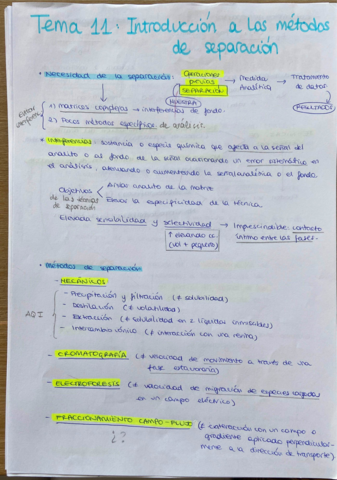 Tema 11: Introducción a los métodos
de separación
• Necesidad de la separación: Operaciones previas → Medida Analítica → Tratamiento de datos
SEPARACIÓN
MUESTRA
RESULTADOS
1) Matrices complejas → interferencias de fondo.
2) Pocos métodos específicos de análisis.
• Interferencias: sustancia o especie química que afecta a la señal del
analito o al fondo de la señal ocasionando un error sistemático en
el análisis, atenuando o aumentando la señal analítica o el fondo.
Objetivos de las técnicas de separación
Aislar analito de la matriz
la especificidad de la técnica.
Elevada sensibilidad y selectividad → Imprescindible contacto
íntimo entre las fases.
↑
(vol + pequeño)
• Métodos de separación
- MECÁNICOS
AQI
- Precipitación y filtración (≠ solubilidad)
- Destilación (≠ volatilidad)
- Extracción (≠ solubilidad en 2 líquidos inmiscibles)
- Intercambio iónico (≠ interacción con una resina)
- CROMATOGRAFÍA (≠ velocidad de movimiento a través de una
fase estacionaria)
- ELECTROFORESIS (≠ velocidad de migración de especies cargadas
en un campo eléctrico)
- FRACCIONAMIENTO CAMPO-FLUJO (≠ interacción con un campo o
gradiente aplicado perpendicular-
mente a la dirección de transporte)
¿?